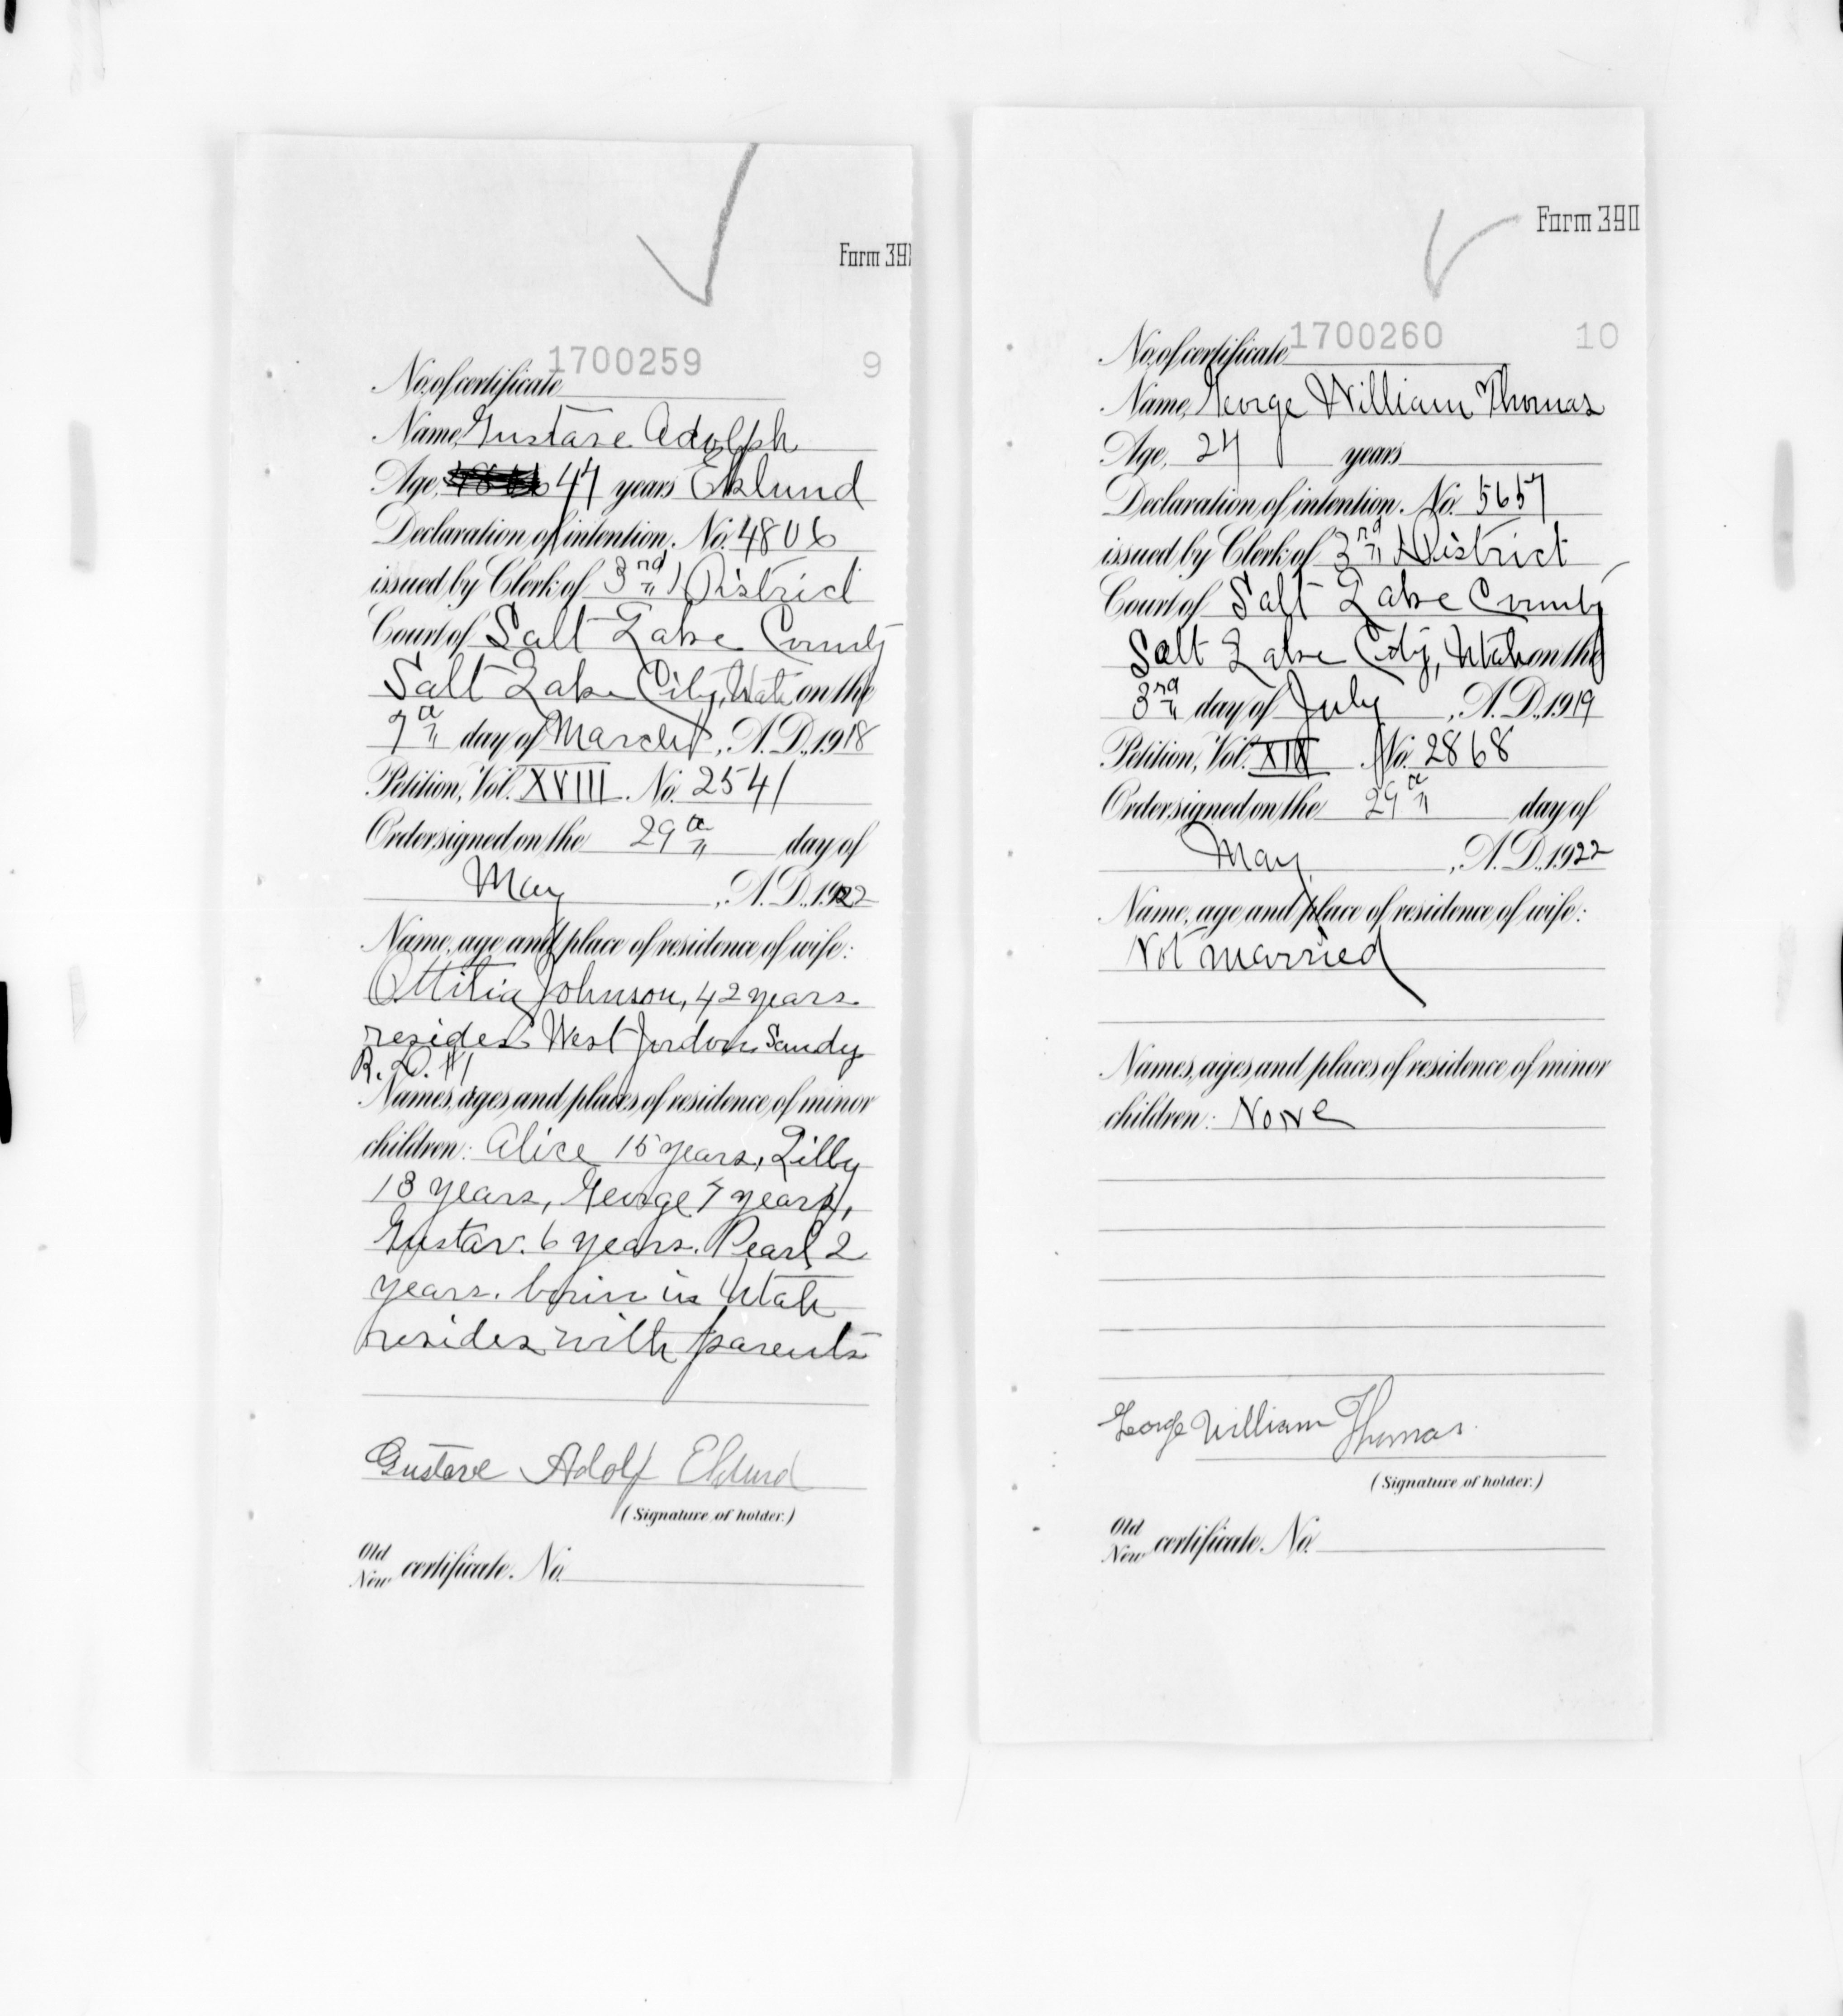 Form 39
1700259 9
No. of certificate
Name, Gustave Adolph
Age, 47 years Eklund
Declaration of intention, No. 4806
issued by Clerk of 3rd District
Court of Salt Lake County
Salt Lake City, Utah on the
7th day of March, A.D. 1918
Petition, Vol. XVIII No. 2541
Order signed on the 29th day of
May, A.D. 1922
Name, age and place of residence of wife:
Ottilia Johnson, 42 years
resides West Jordan, Sandy
R. D. #1
Names, ages and places of residence of minor
children: Alice 15 years, Lilly
13 years, George 7 years,
Gustav. 6 years. Pearl 2
years. born in Utah
resides with parents
Gustave Adolf Eklund
(Signature of holder.)
Old
New certificate No.
Form 390
1700260 10
No. of certificate
Name, George William Thomas
Age, 24 years
Declaration of intention, No. 5657
issued by Clerk of 3rd District
Court of Salt Lake County
Salt Lake City, Utah on the
3rd day of July, A.D. 1919
Petition, Vol. XIX No. 2868
Order signed on the 29th day of
May, A.D. 1922
Name, age and place of residence of wife:
Not married
Names, ages and places of residence of minor
children: None
George William Thomas.
(Signature of holder.)
Old
New certificate No.